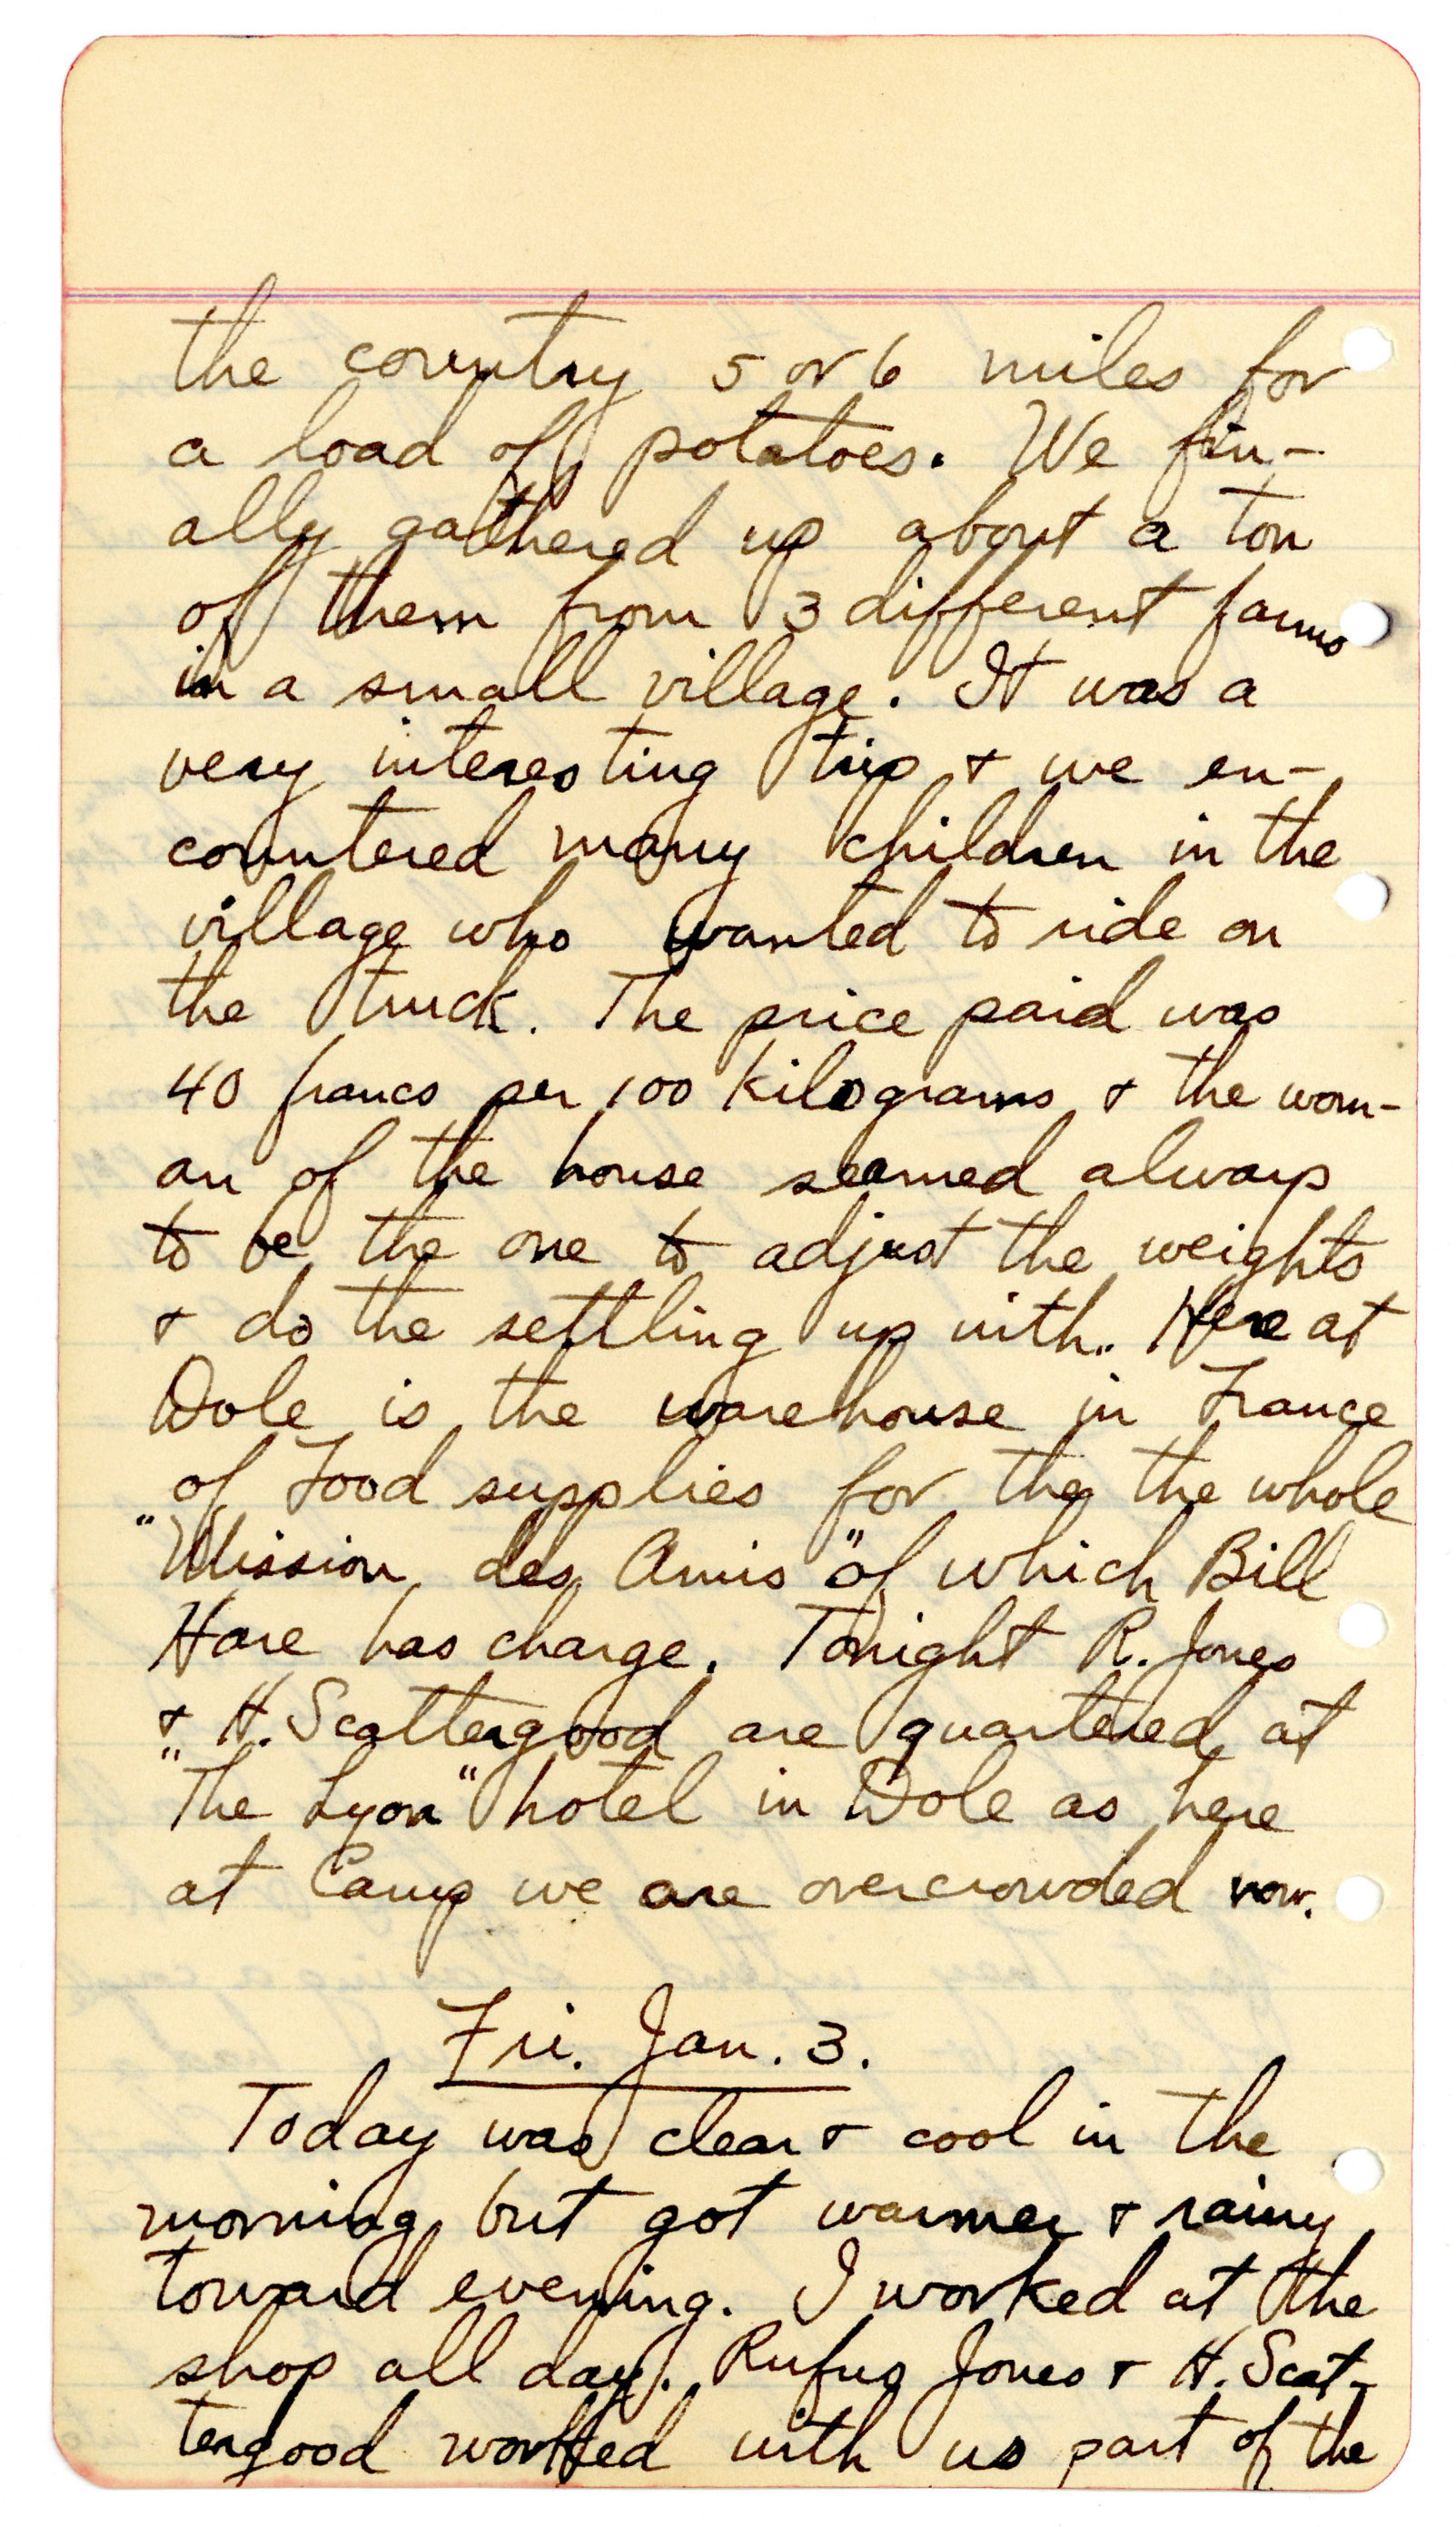 the country 5 or 6 miles for
a load of potatoes. We fin-
ally gathered up about a ton
of them from 3 different farms
in a small village. It was a
very interesting trip + we en-
countered many children in the
village who wanted to ride on
the truck. The price paid was
40 francs per 100 kilograms + the wom-
an of the house seemed always
to be the one to adjust the weights
+ do the settling up with. Here at
Dole is the warehouse in France
of Food supplies for the the whole
"Mission des Amis" of which Bill
Hare has charge. Tonight R. Jones
+ H. Scattergood are quartered at
"The Lyon" hotel in Dole as here
at Camp we are overcrowded now.
Fri. Jan. 3.
Today was clear + cool in the
morning but got warmer + rainy
toward evening. I worked at the
shop all day. Rufus Jones + H. Scat-
tergood worked with us part of the